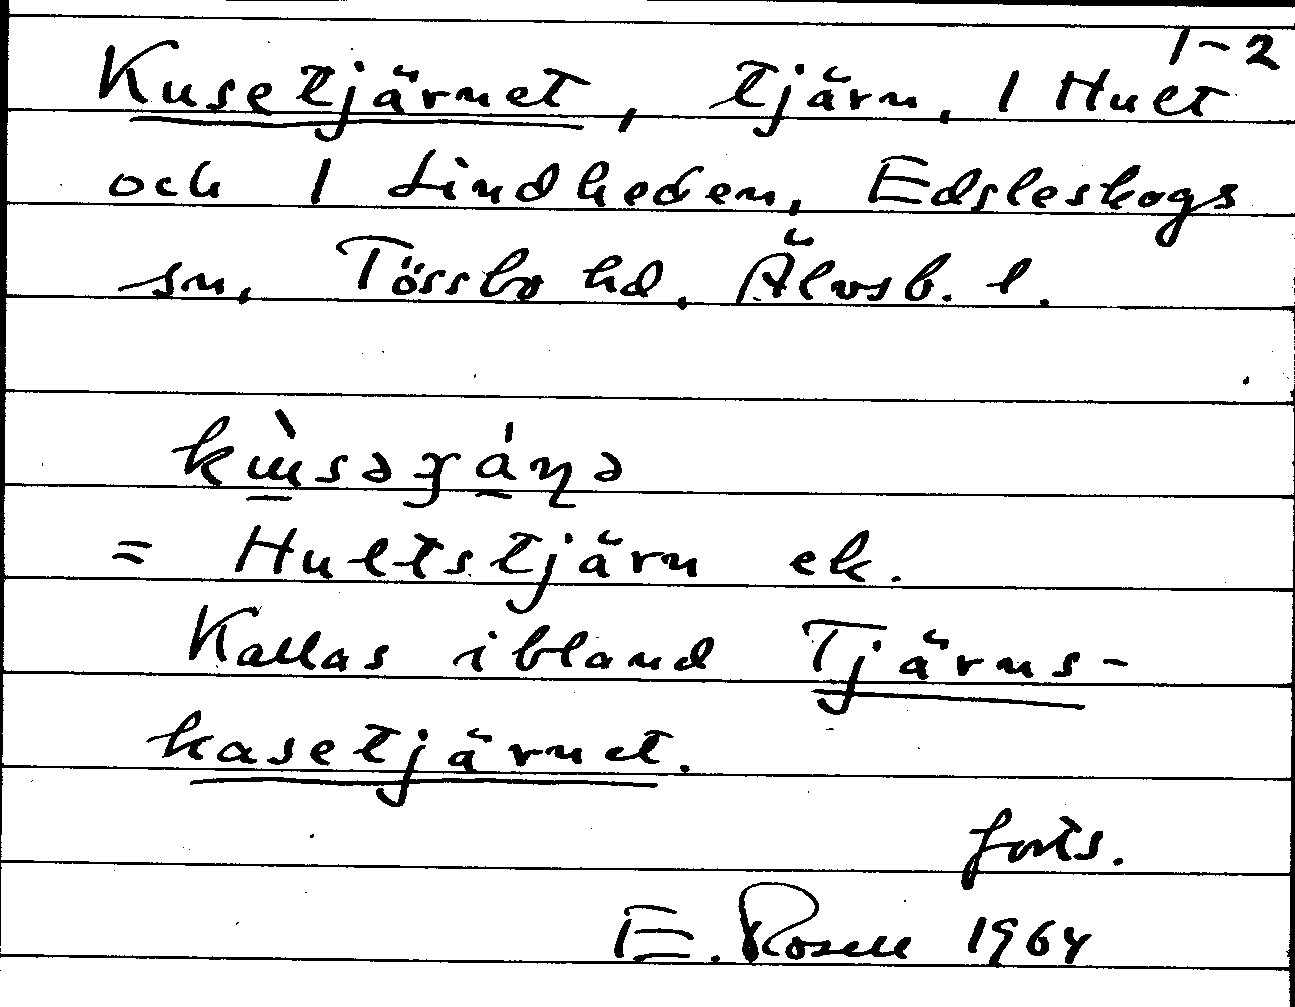 1-2
Kusetjärnet, tjärn, 1 Hult
och 1 Lindheden, Edsleskogs
sn, Tössbo hd, Älvsb. l.
= Hultstjärn ek.
Kallas ibland Tjärns-
kasetjärnet.
forts.
E. Rosell 1964